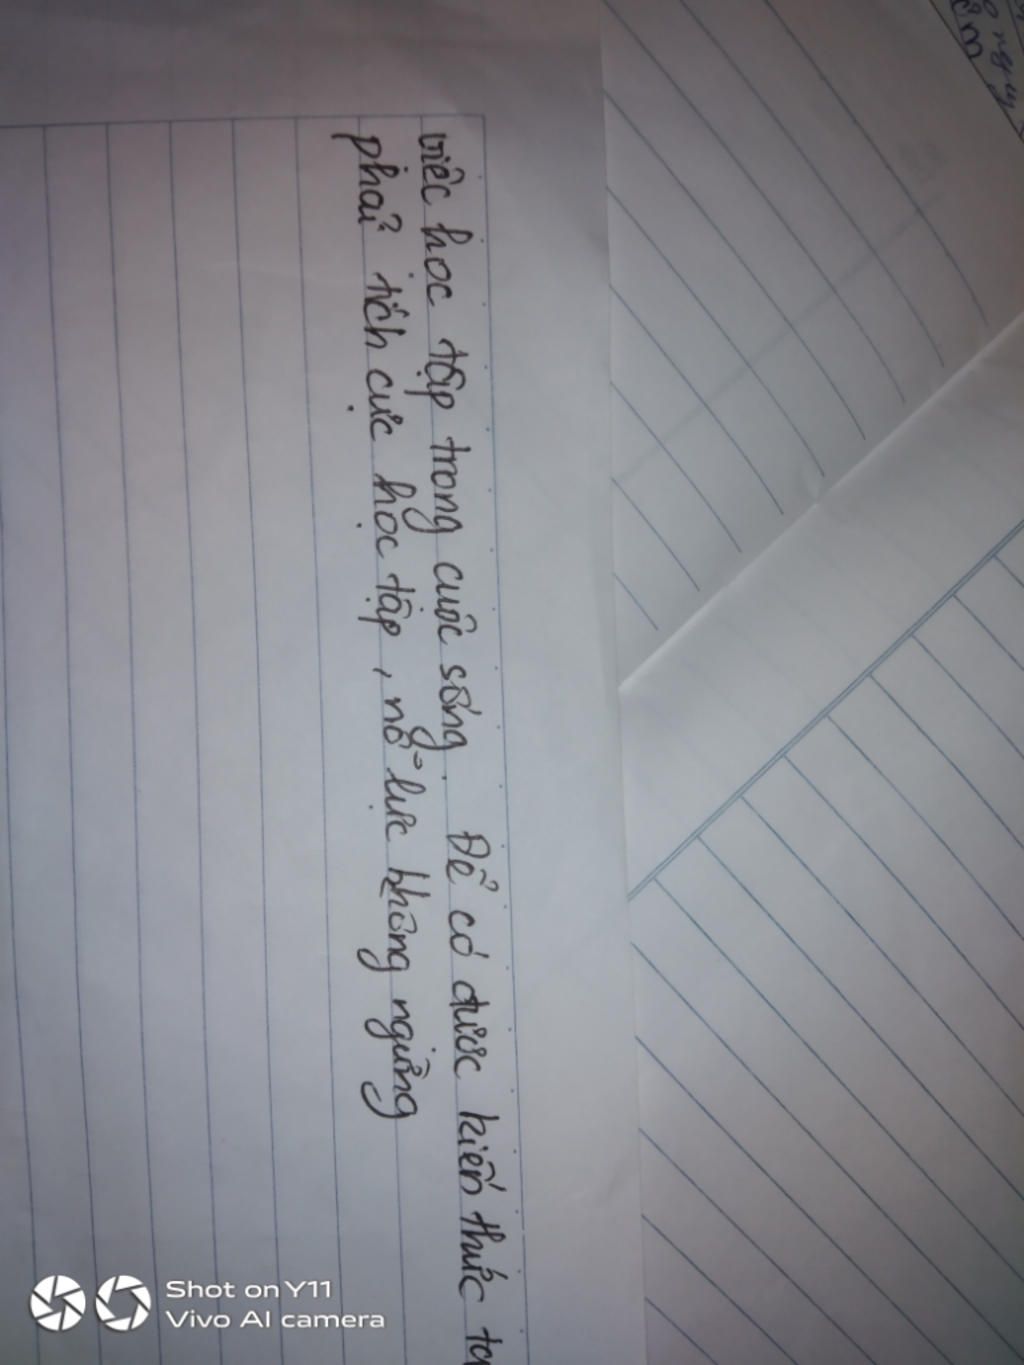 việc học tập trong cuộc sống. Để có được kiến thức ta
phải tích cực học tập, nỗ lực không ngừng
Shot on Y11
Vivo AI camera